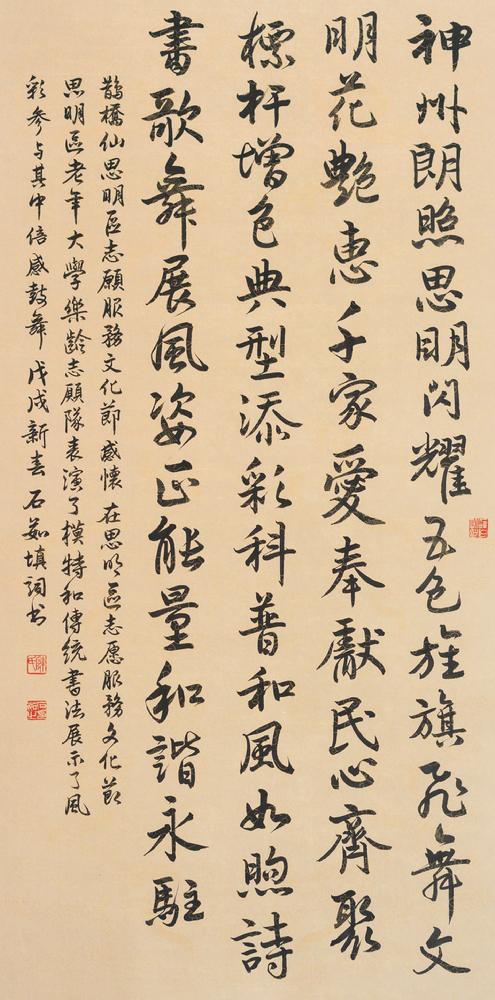 神州朗照思明闪耀五色旌旗飛舞文
明花艳惠千家愛奉獻民心齊聚
標杆增色典型添彩科普和風如煦詩
書歌舞展風姿正能量和諧永駐
鵲橋仙思明区志願服務文化節感懷 在思明區志愿服務文化節
思明區老年大學樂齡志願隊表演了模特和傳統書法展示了風
彩参与其中倍感鼓舞 戊戌新春 石茹填詞书